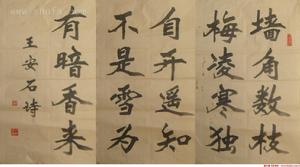 墙角数枝
梅凌寒独
自开遥知
不是雪为
有暗香来
王安石诗